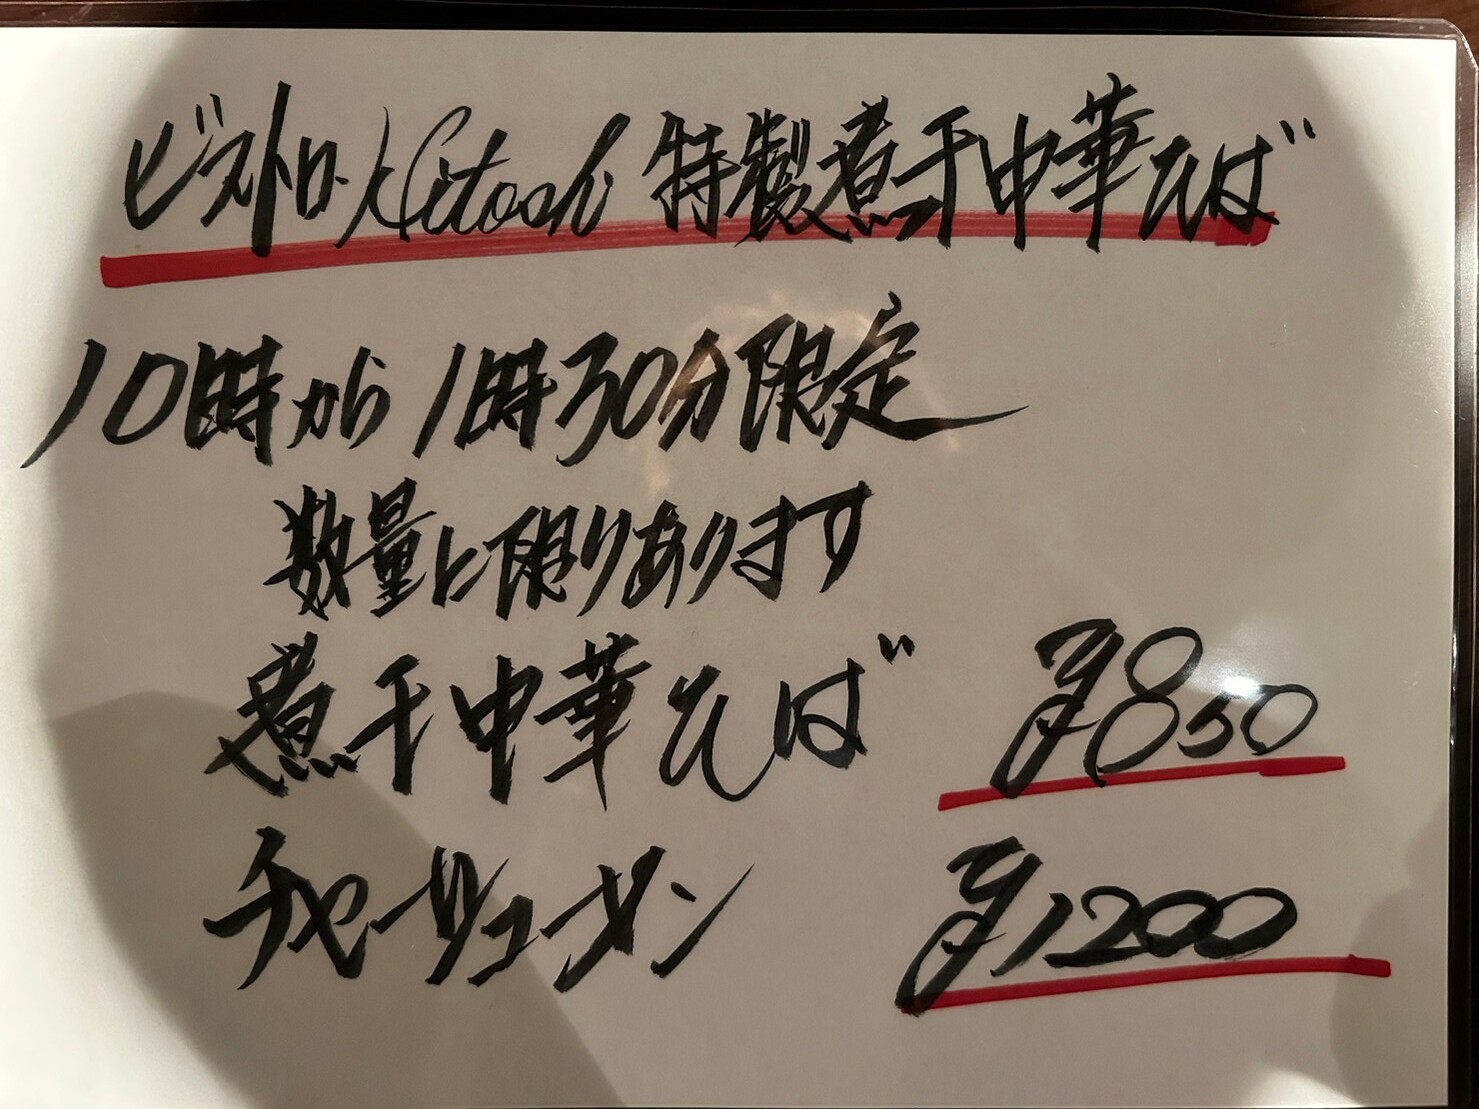 ビストロ Kitooh 特製煮干中華そば
10時から1時30分限定
数量に限りあります
煮干中華そば ¥850
チャーシューメン ¥1200